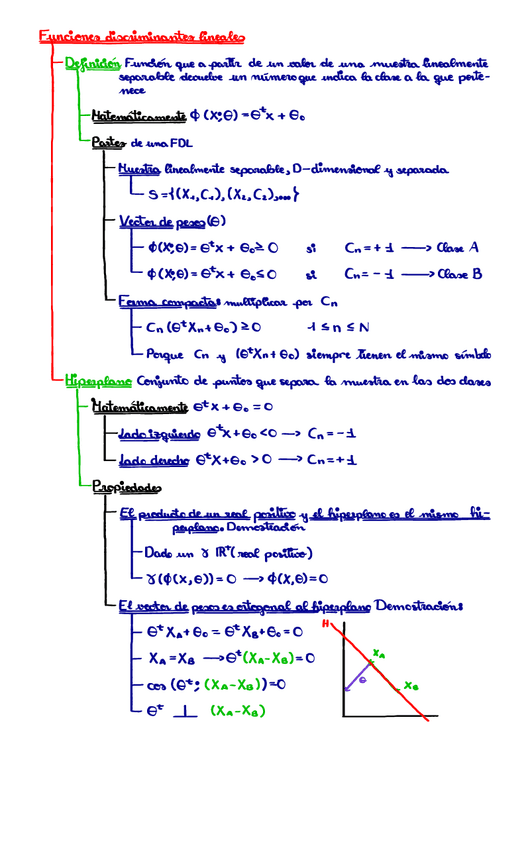 Funciones discriminantes lineales
Definición Función que a partir de un valor de una muestra linealmente
separable devuelve un número que indica la clase a la que perte-
nece
Matemáticamente ϕ (X;Θ) = Θᵗx + Θ₀
Partes de una FDL
Muestra linealmente separable, D-dimensional y separada
S = {(X₁,C₁), (X₂,C₂),...}
Vector de pesos (Θ)
ϕ(X;Θ) = Θᵗx + Θ₀ ≥ 0 si Cn = +1 → Clase A
ϕ(X;Θ) = Θᵗx + Θ₀ ≤ 0 si Cn = -1 → Clase B
Forma compacta: multiplicar por Cn
Cn (ΘᵗXn + Θ₀) ≥ 0 1 ≤ n ≤ N
Porque Cn y (ΘᵗXn + Θ₀) siempre tienen el mismo símbolo
Hiperplano Conjunto de puntos que separa la muestra en las dos clases
Matemáticamente Θᵗx + Θ₀ = 0
Lado izquierdo Θᵗx + Θ₀ < 0 → Cn = -1
Lado derecho Θᵗx + Θ₀ > 0 → Cn = +1
Propiedades
El producto de un real positivo y el hiperplano es el mismo hi-
perplano. Demostración
Dado un γ IR⁺ (real positivo)
γ(ϕ(x,Θ)) = 0 → ϕ(X,Θ) = 0
El vector de pesos es ortogonal al hiperplano Demostración:
ΘᵗX_A + Θ₀ = ΘᵗX_B + Θ₀ = 0
X_A = X_B → Θᵗ(X_A - X_B) = 0
cos (Θᵗ; (X_A - X_B)) = 0
Θᵗ ⊥ (X_A - X_B)
H
X_A
Θ
X_B